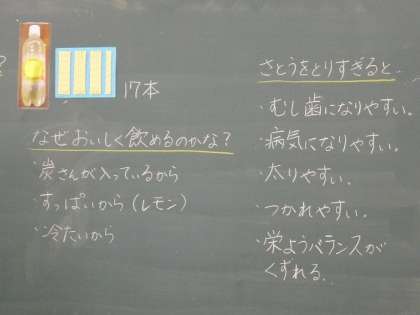 ?
17本
なぜおいしく飲めるのかな?
・炭さんが入っているから
・すっぱいから(レモン)
・冷たいから
さとうをとりすぎると…
・むし歯になりやすい。
・病気になりやすい。
・太りやすい。
・つかれやすい。
・栄ようバランスが
くずれる。